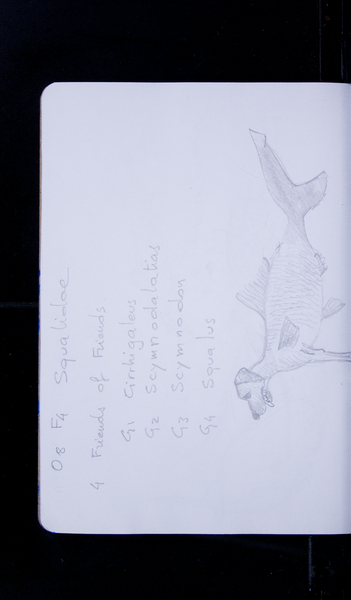 O8 F4 Squalidae
4 Friends of Friends
G1 Cirrhigaleus
G2 Scymnodalatias
G3 Scymnodon
G4 Squalus